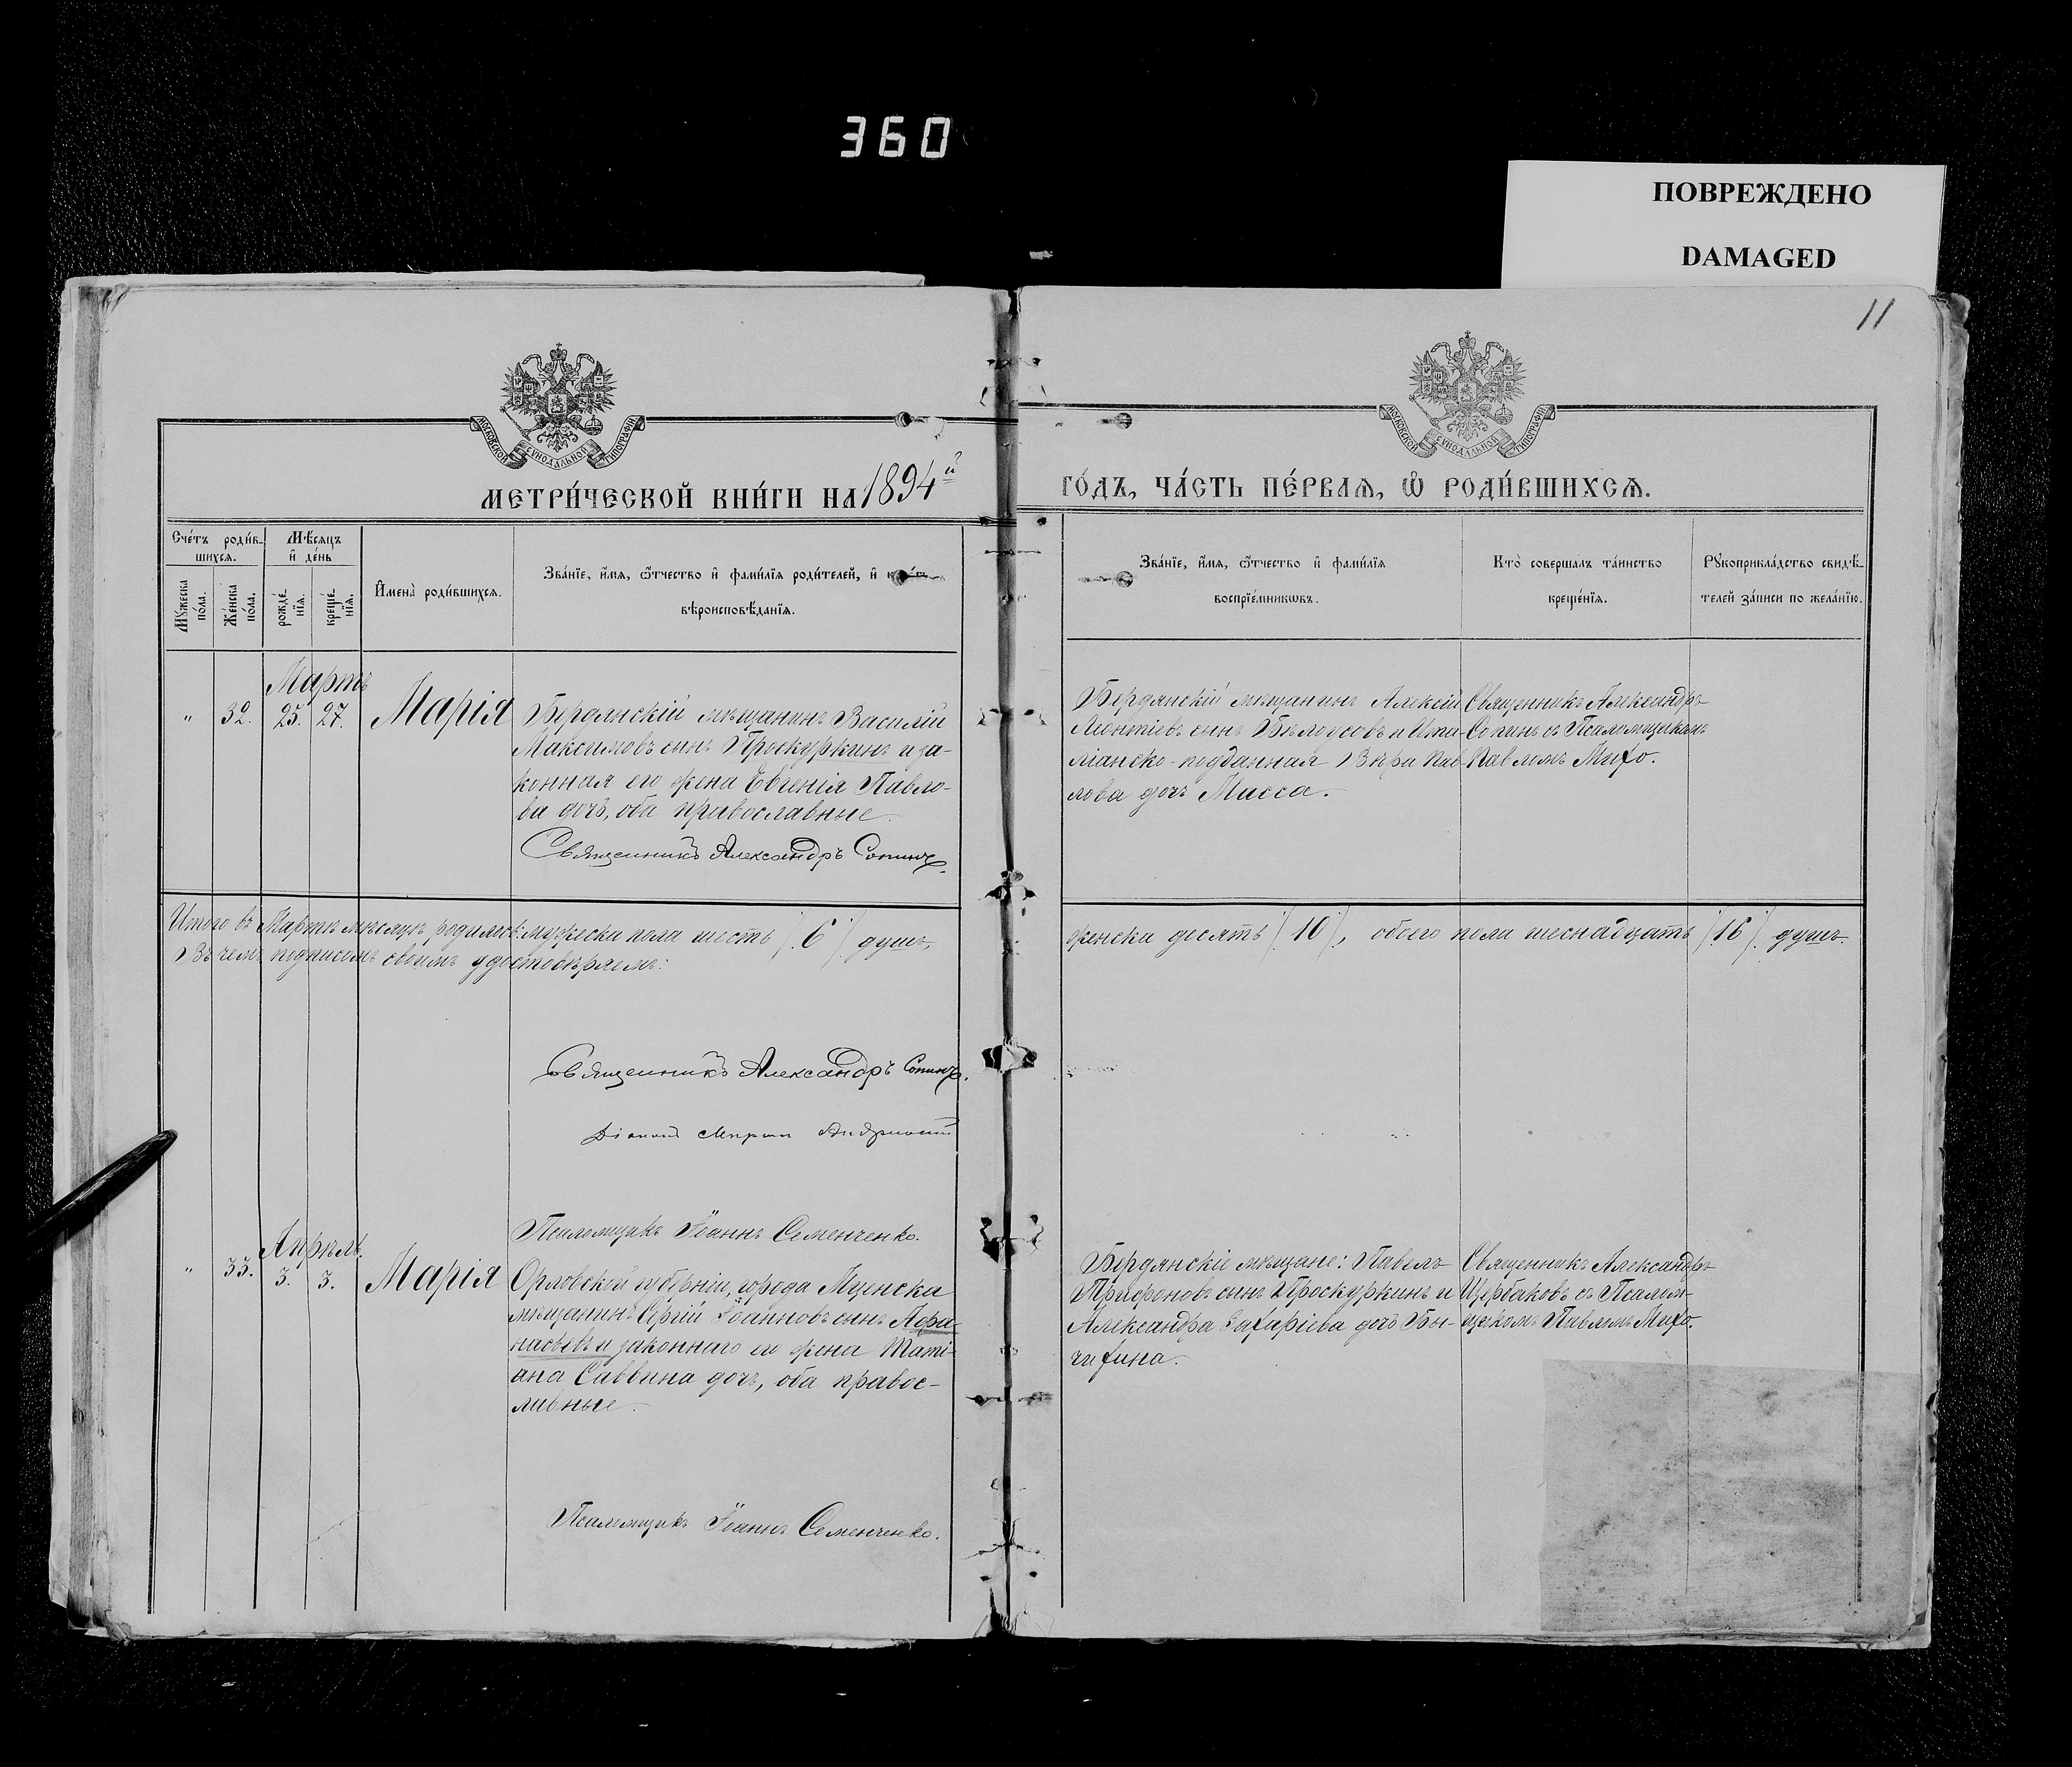 360
ПОВРЕЖДЕНО
DAMAGED
11
МОСКОВСКОЙ СѴНОДАЛЬНОЙ ТИПОГРАФІИ
МОСКОВСКОЙ СѴНОДАЛЬНОЙ ТИПОГРАФІИ
МЕТРИ́ЧЕСКОЙ КНИ́ГИ НА 1894й
ГО́ДЪ, ЧА́СТЬ ПЕ́РВАѦ, Ѽ РОДИ́ВШИХСѦ.
Сче́тъ роди́в-
шихсѧ.
Мѣ́сѧцъ
и҆ де́нь
Мꙋ́жеска
по́ла.
Же́нска
по́ла.
рожде́-
нїѧ.
креще́-
нїѧ.
И҆мена̀ роди́вшихсѧ.
Зва́нїе, и҆́мѧ, ѻ҆́тчество и҆ фами́лїѧ роди́телей, и҆
вѣроисповѣ́данїѧ.
Зва́нїе, и҆́мѧ, ѻ҆́тчество и҆ фами́лїѧ
воспрїе́мникѡвъ.
Кто̀ соверша́лъ та́инство
креще́нїѧ.
Рꙋкоприкла́дство свидѣ́-
телей за́писи по жела́нїю.
Мартъ
" 32. 25. 27. Марія
Бердянскій мѣщанинъ Василій
Максимовъ сынъ Проскуркинъ и за-
конная его жена Евгенія Павло-
ва дочь, оба православные.
Священникъ Александръ Сопинъ.
Бердянскій мѣщанинъ Алексій
Леонтіевъ сынъ Бѣлоусовъ и Ита-
ліанско-подданная Пав-
лова дочь Мисса.
Священникъ Александръ
Сопинъ съ Псаломщикомъ
Павломъ
Итого въ Мартѣ мѣсяцѣ родилось: мужеска пола шесть /6/ душъ,
женска десять /10/, обоего пола шеснадцать /16/ душъ.
Въ чемъ подписомъ своимъ удостовѣряемъ:
Священникъ Александръ Сопинъ.
Діаконъ
Псаломщикъ Іоаннъ Семенченко.
Апрѣль.
" 33. 3. 3. Марія
Орловской губерніи, города Мценска
мѣщанинъ Сергій Іоанновъ сынъ Афа-
насьевъ и законнаго его жена Тати-
ана Саввина дочь, оба правос-
лавные.
Бердянскіе мѣщане: Павелъ
Трифоновъ сынъ Проскуркинъ и
Александра Захаріева дочь Бы-
Священникъ Александръ
Щербаковъ съ Псалом-
щикомъ Павломъ
Псаломщикъ Іоаннъ Семенченко.